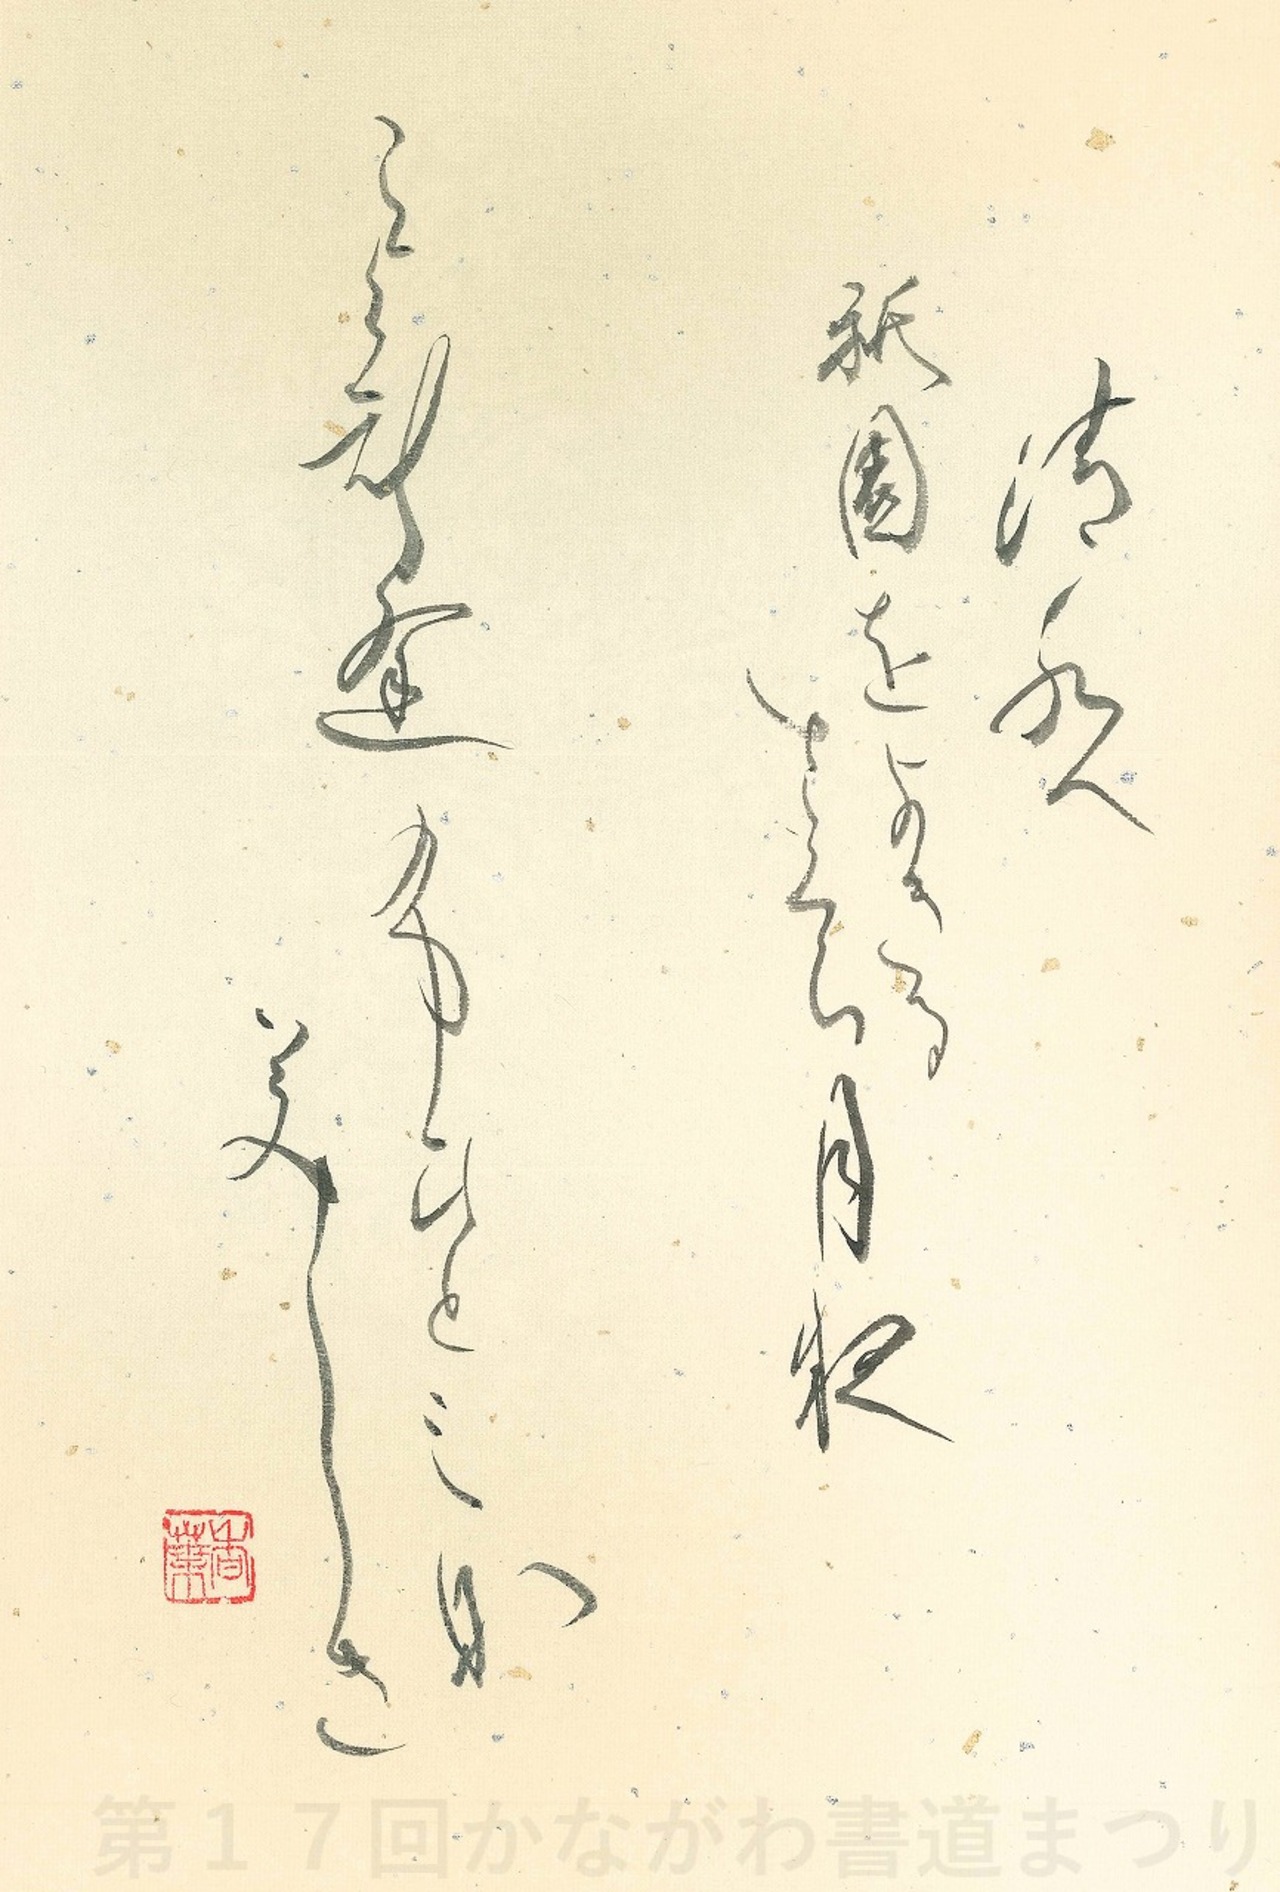 清水へ
祇園をよきる
さくら月夜
こよひ逢ふひとみな
美しき
香葉
第１７回かながわ書道まつり